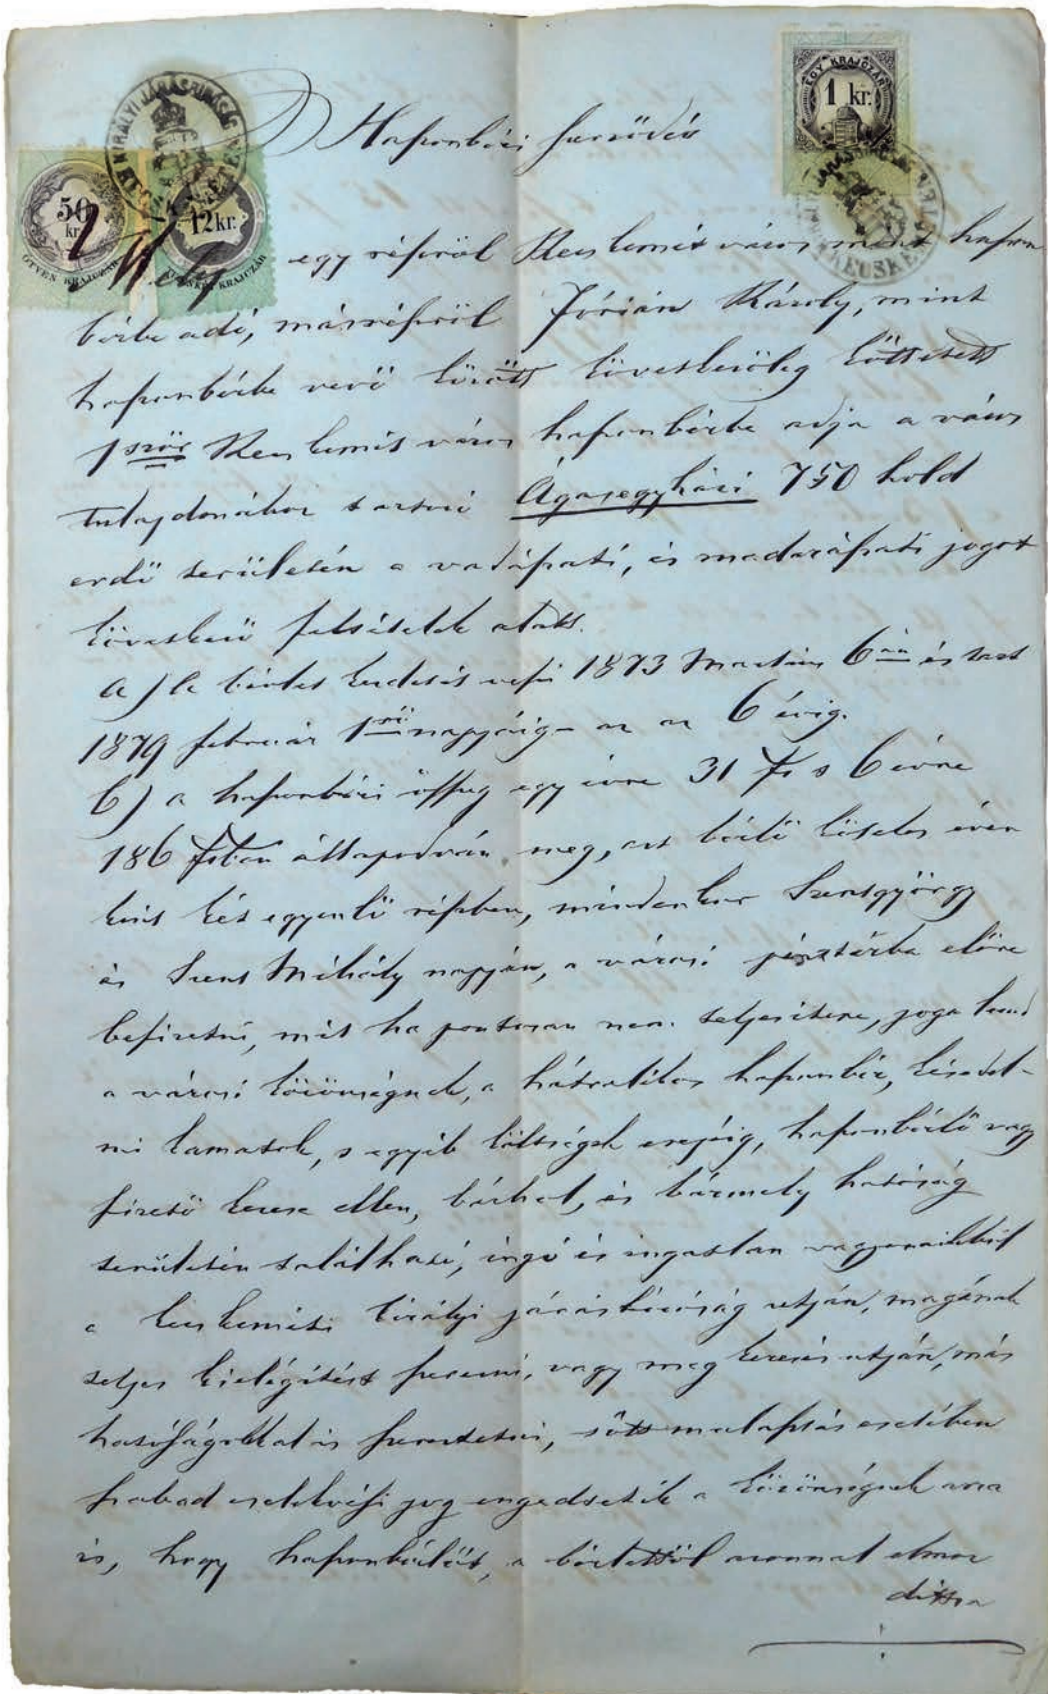 Haszonbéri szerződés
EGY KRAJCZÁR
1 kr.
50 kr.
ÖTVEN KRAJCZÁR
12 kr.
egy részről Kecskemét város mint haszon
bérbe adó, másrészről Fórián Károly, mint
haszonbérbe vevő között következőleg köttetett
1ször Kecskemét város haszonbérbe adja a város
tulajdonához tartozó Ágasegyházi 750 hold
erdő területén a vadászati, és madarászati jogot
következő feltételek alatt.
a) A bérlet kezdetét veszi 1873 Martius 6án és tart
1879 február 1ső napjáig – az az 6 évig.
b) a haszonbéri összeg egy évre 31 ft s 6 évre
186 ftban állapodván meg, azt bérlő köteles éven
kint két egyenlő részben, mindenkor Szentgyörgy
és Szent Mihály napján, a városi pénztárba előre
befizetni, mit ha pontosan nem teljesítene, joga leend
a városi közönségnek, a hátralékos haszonbér, késedel-
mi kamatok, s egyéb költségek erejéig, haszonbérlő vagy
fizető kezese ellen, bárhol, és bármely hatóság
területén található, ingó és ingatlan vagyonaikból
a kecskeméti királyi járásbíróság utján, magának
teljes kielégítést szerezni, vagy meg keresés utján, más
hatóságokkal is szereztetni, sőtt mulasztás esetében
szabad cselekvési jog engedtetik a közönségnek arra
is, hogy haszonbérlőt, a bérlettől azonnal elmoz
dítsa